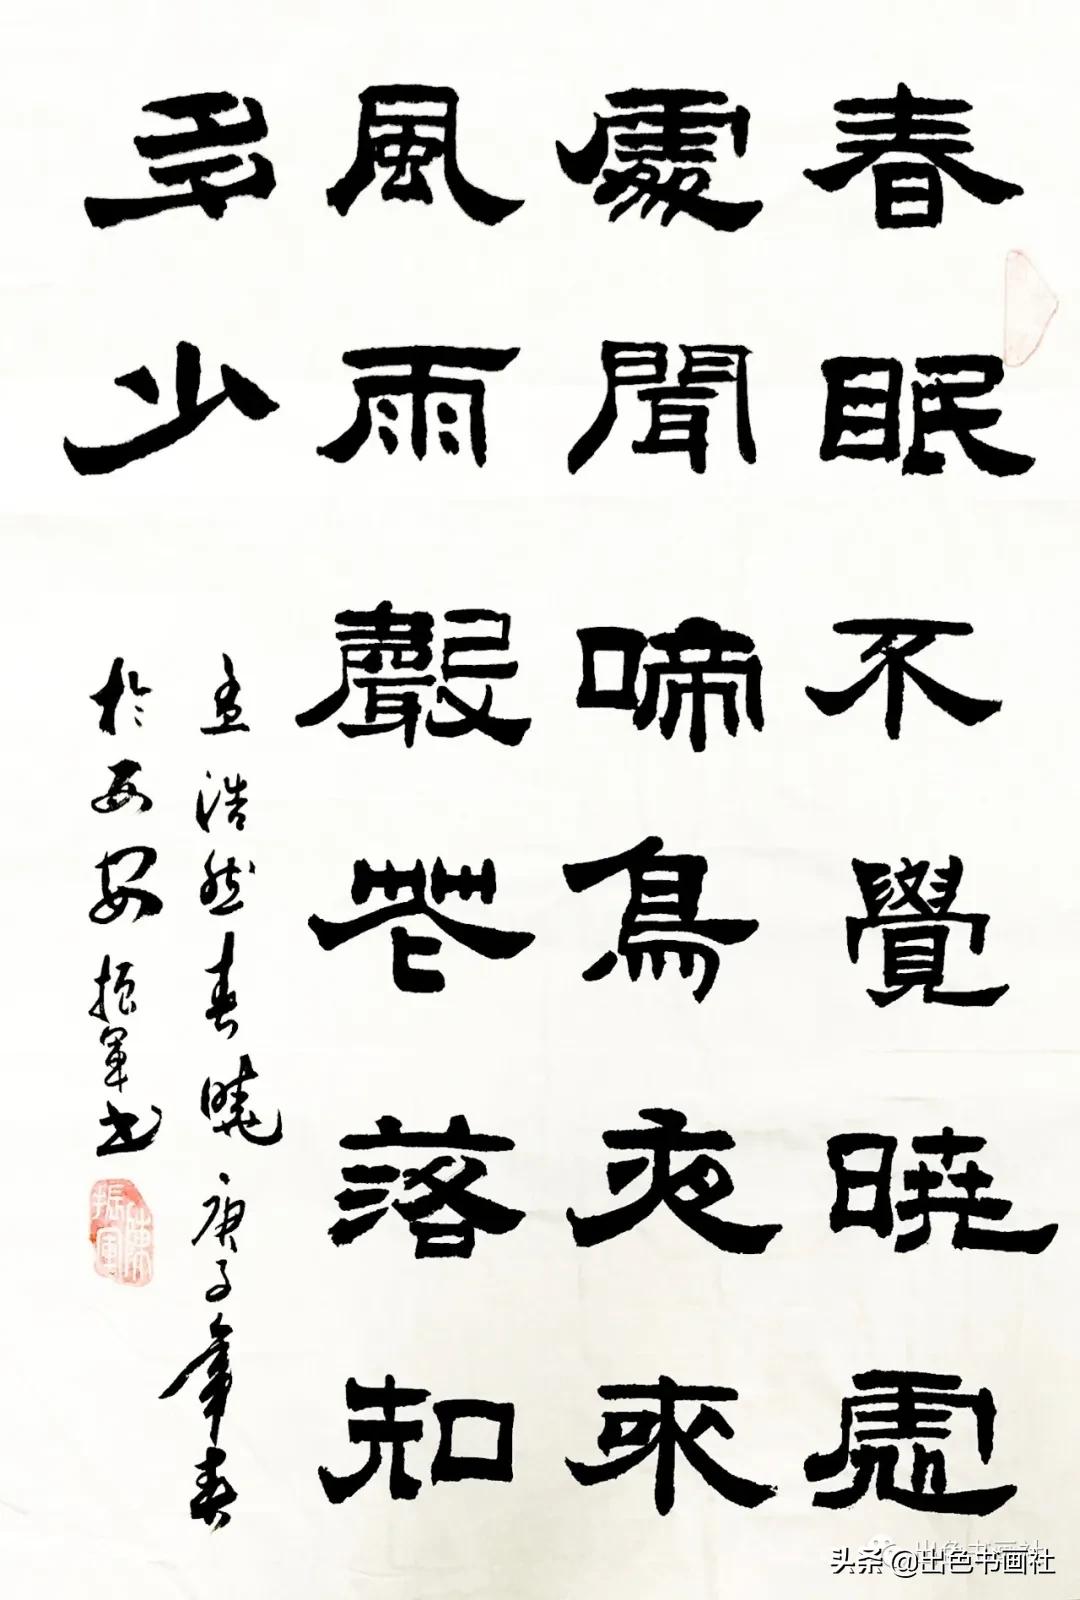 春眠不覺曉處
處聞啼鳥夜來
風雨聲花落知
多少
孟浩然春曉庚子年春
於西安振軍书
陳振軍
头条@出色书画社
出色书画社